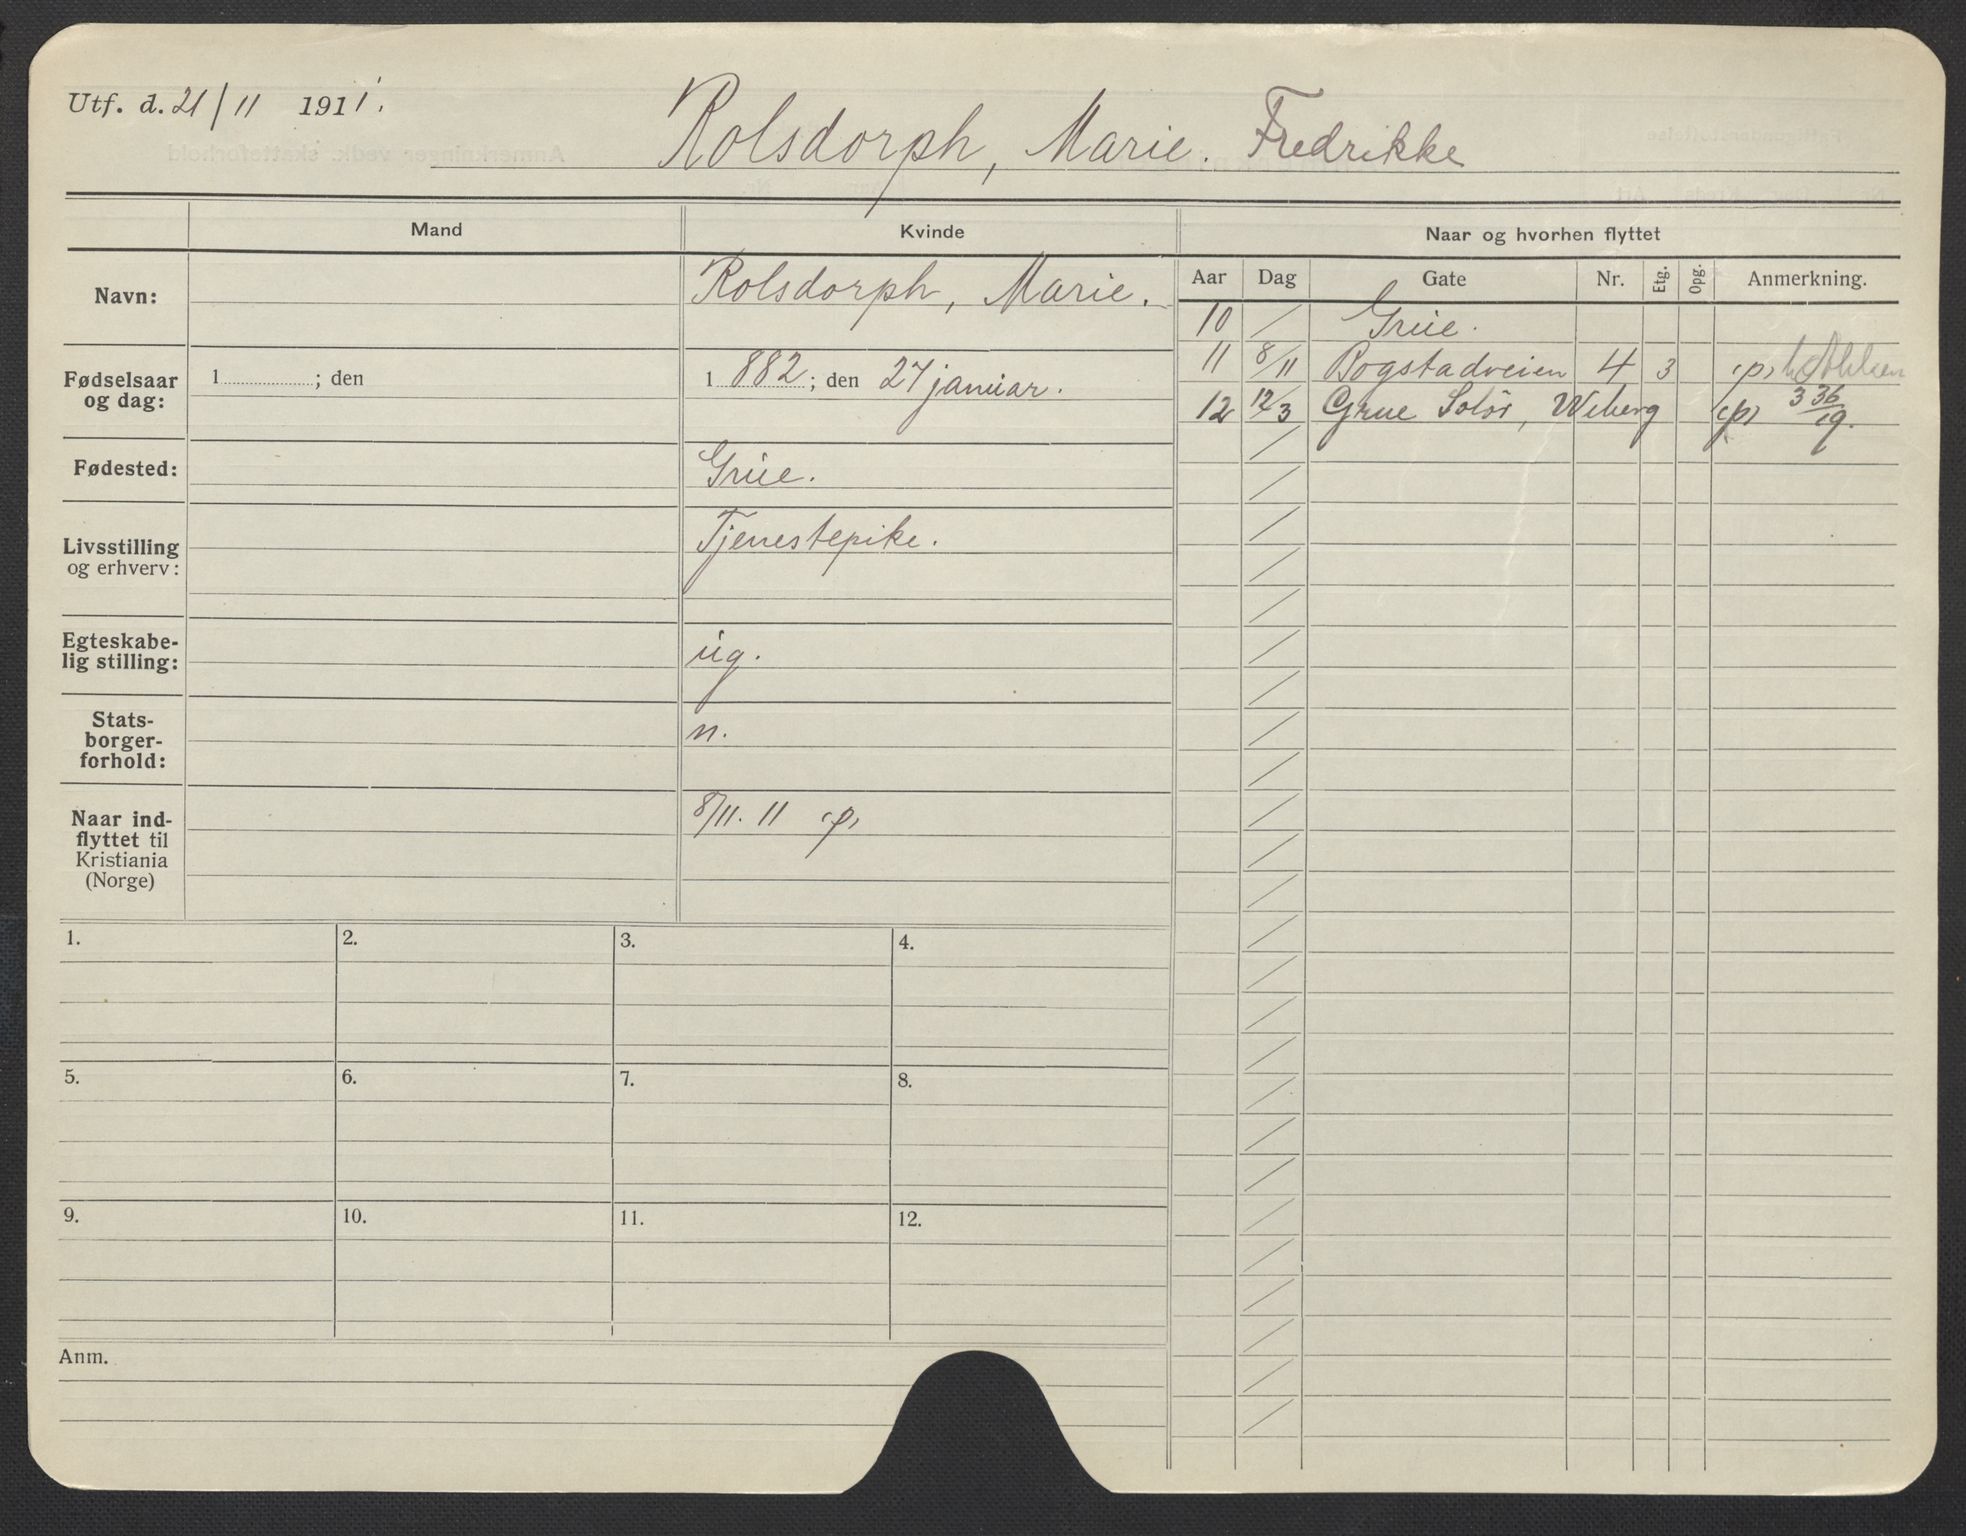 Utf. d. 21/11 1911.
Rolsdorph, Marie. Fredrikke
Mand
Kvinde
Naar og hvorhen flyttet
Navn:
Rolsdorph, Marie.
Aar Dag Gate Nr. Etg. Opg. Anmerkning.
10 / Grue.
11 8/11 Bogstadveien 4 3 (p)
12 12/3 Grue Solør, Wiberg (p) 3 36/19.
Fødselsaar
og dag:
1 ; den
1 882 ; den 27 januar.
Fødested:
Grue.
Livsstilling
og erhverv:
Tjenestepike.
Egteskabe-
lig stilling:
ug.
Stats-
borger-
forhold:
n.
Naar ind-
flyttet til
Kristiania
(Norge)
8/11. 11 (p)
1. 2. 3. 4.
5. 6. 7. 8.
9. 10. 11. 12.
Anm.